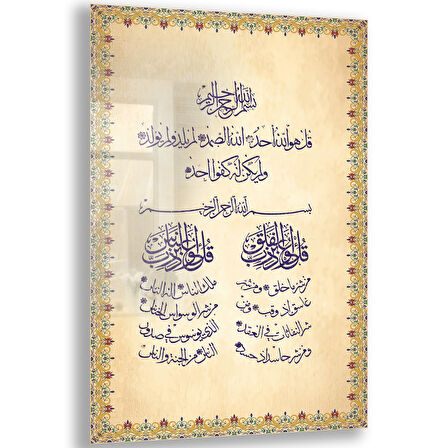 بسم الله الرحمن الرحيم
قل هو الله احد الله الصمد لم يلد ولم يولد
ولم يكن له كفوا احد
بسم الله الرحمن الرحيم
قل اعوذ برب الفلق
من شر ما خلق ومن شر
غاسق اذا وقب ومن
شر النفاثات في العقد
ومن شر حاسد اذا حسد
قل اعوذ برب الناس
ملك الناس اله الناس
من شر الوسواس الخناس
الذي يوسوس في صدور
الناس من الجنة والناس